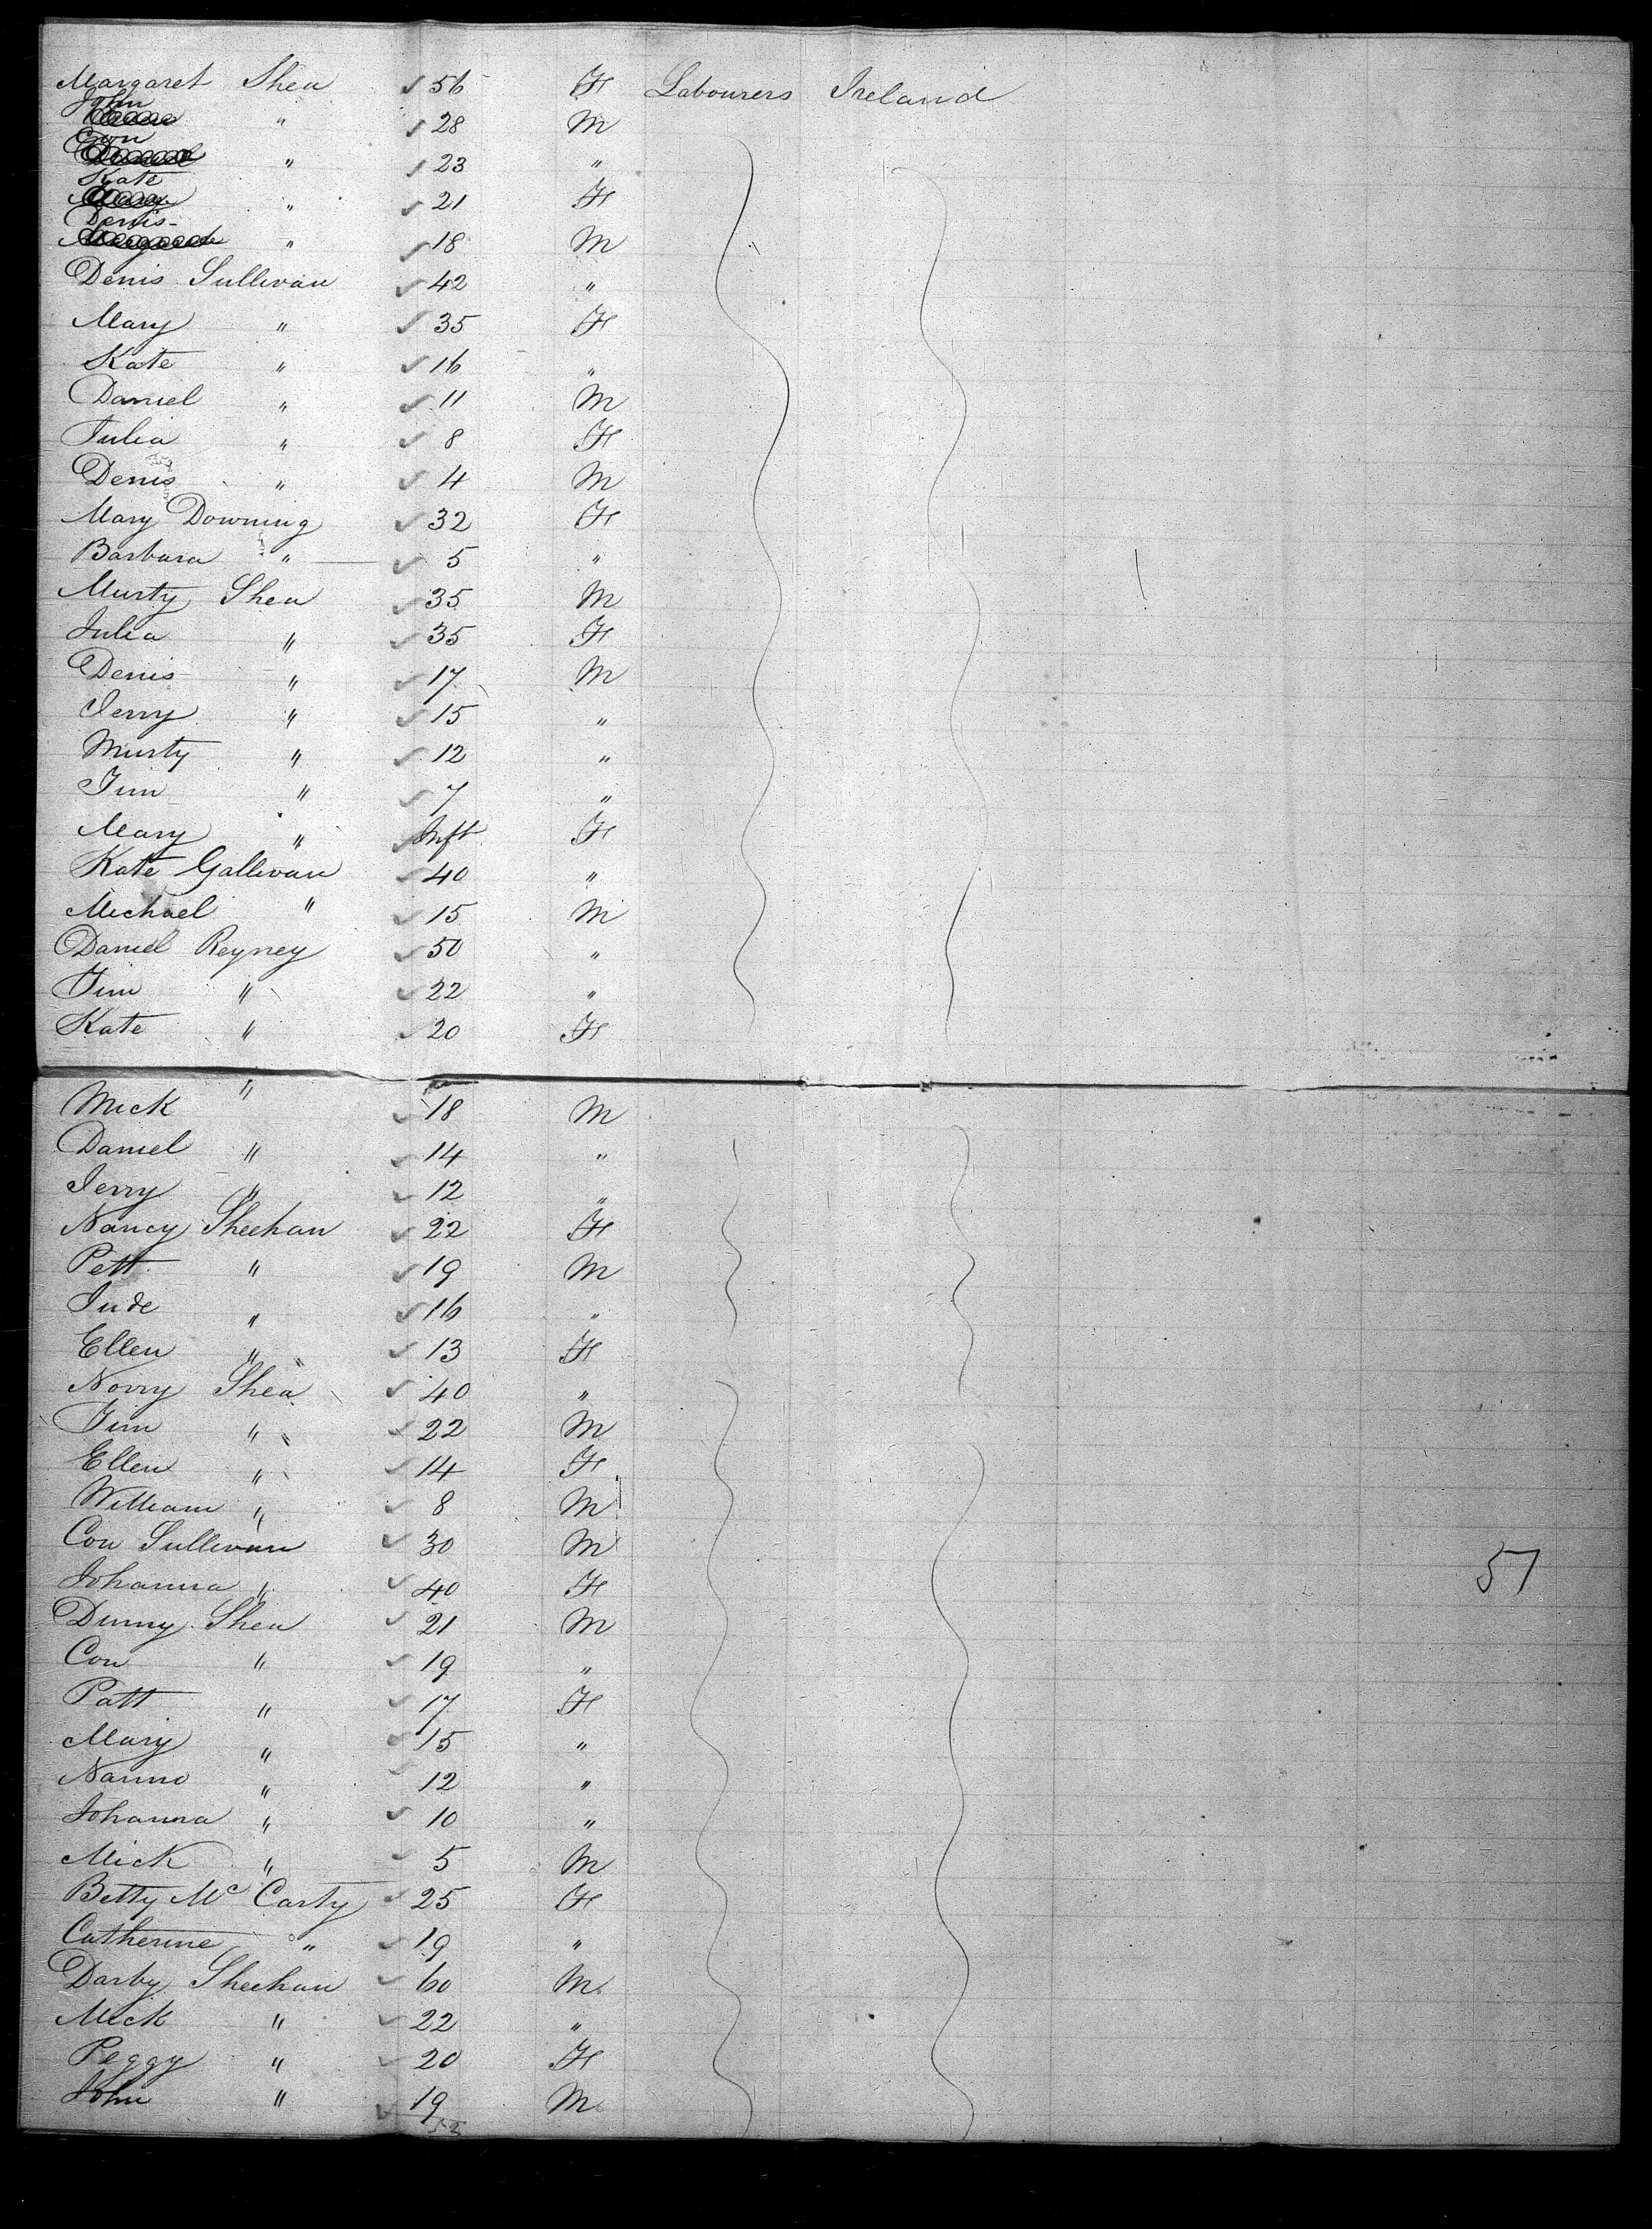 Margaret Shea ✓ 56 F Labourers Ireland
John " ✓ 28 M
Con " ✓ 23 "
Kate " ✓ 21 F
Denis " ✓ 18 M
Denis Sullivan ✓ 42 "
Mary " ✓ 35 F
Kate " ✓ 16 "
Daniel " ✓ 11 M
Julia " ✓ 8 F
Denis " ✓ 4 M
Mary Downing ✓ 32 F
Barbara " ✓ 5 "
Murty Shea ✓ 35 M
Julia " ✓ 35 F
Denis " ✓ 17 M
Jerry " ✓ 15 "
Murty " ✓ 12 "
Tim " ✓ 7 "
Mary " ✓ Inft F
Kate Gallivan ✓ 40 "
Michael " ✓ 15 M
Daniel Reyney ✓ 50 "
Tim " ✓ 22 "
Kate " ✓ 20 F
Mick " ✓ 18 M
Daniel " ✓ 14 "
Jerry " ✓ 12 "
Nancy Sheehan ✓ 22 F
Patt " ✓ 19 M
Jude " ✓ 16 "
Ellen " ✓ 13 F
Norry Shea ✓ 40 "
Tim " ✓ 22 M
Ellen " ✓ 14 F
William " ✓ 8 M
Con Sullivan ✓ 30 M
Johanna " ✓ 40 F 57
Dunny Shea ✓ 21 M
Con " ✓ 19 "
Patt " ✓ 17 F
Mary " ✓ 15 "
Nanno " ✓ 12 "
Johanna " ✓ 10 "
Mick " ✓ 5 M
Betty Mc Carty ✓ 25 F
Catherine " ✓ 19 "
Darby Sheehan ✓ 60 M
Mick " ✓ 22 "
Peggy " ✓ 20 F
John " ✓ 19 M